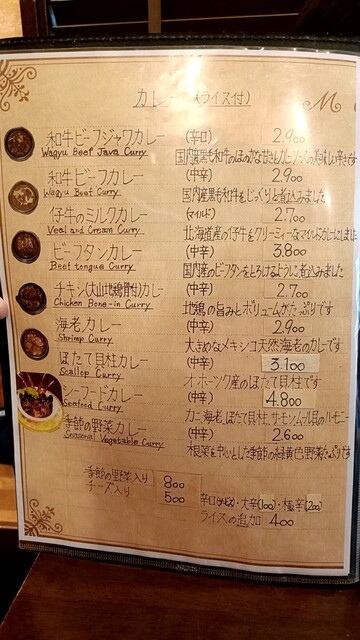 カレー (ライス付) M
和牛ビーフジャワカレー (辛口) 2.900
Wagyu Beef Java Curry
和牛ビーフカレー (中辛) 2.900
Wagyu Beef Curry 国内産黒毛和牛をじっくりと煮込みました
仔牛のミルクカレー (マイルド) 2.700
Veal and Cream Curry 北海道産の仔牛をクリーミーなマイルドカレーにしました
ビーフタンカレー (中辛) 3.800
Beef tongue Curry 国内産のビーフタンをとろけるように煮込みました
チキン(大山地鶏骨付)カレー (中辛) 2.700
Chicken Bone-in Curry 地鶏の旨みとボリュームがたっぷりです
海老カレー (中辛) 2.900
Shrimp Curry 大きめなメキシコ天然海老のカレーです
ほたて貝柱カレー (中辛) 3.100
Scallop Curry オホーツク産のほたて貝柱です
シーフードカレー (中辛) 4.800
Seafood Curry カニ、海老、ほたて貝柱、サーモン、ムール貝のハーモニー
季節の野菜カレー (中辛) 2.600
Seasonal Vegetable Curry 根菜を中心とした季節の緑黄色野菜たっぷりです
季節の野菜入り 800
チーズ入り 500
辛口 ・大辛(100)・極辛(200)
ライスの追加 400